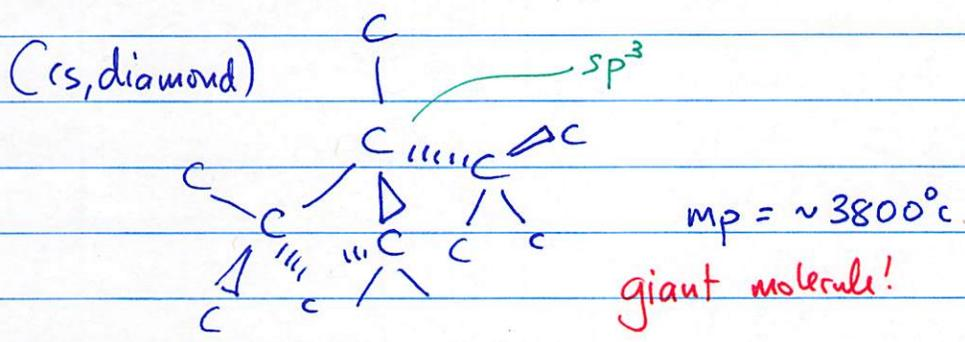 C
C(s, diamond) sp³
C C C C
C C C C mp = ~3800°c
C C giant molecule!